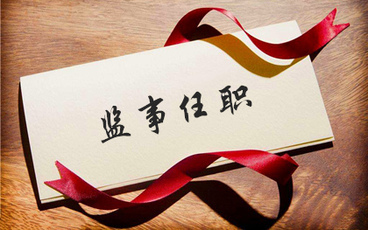 监事任职